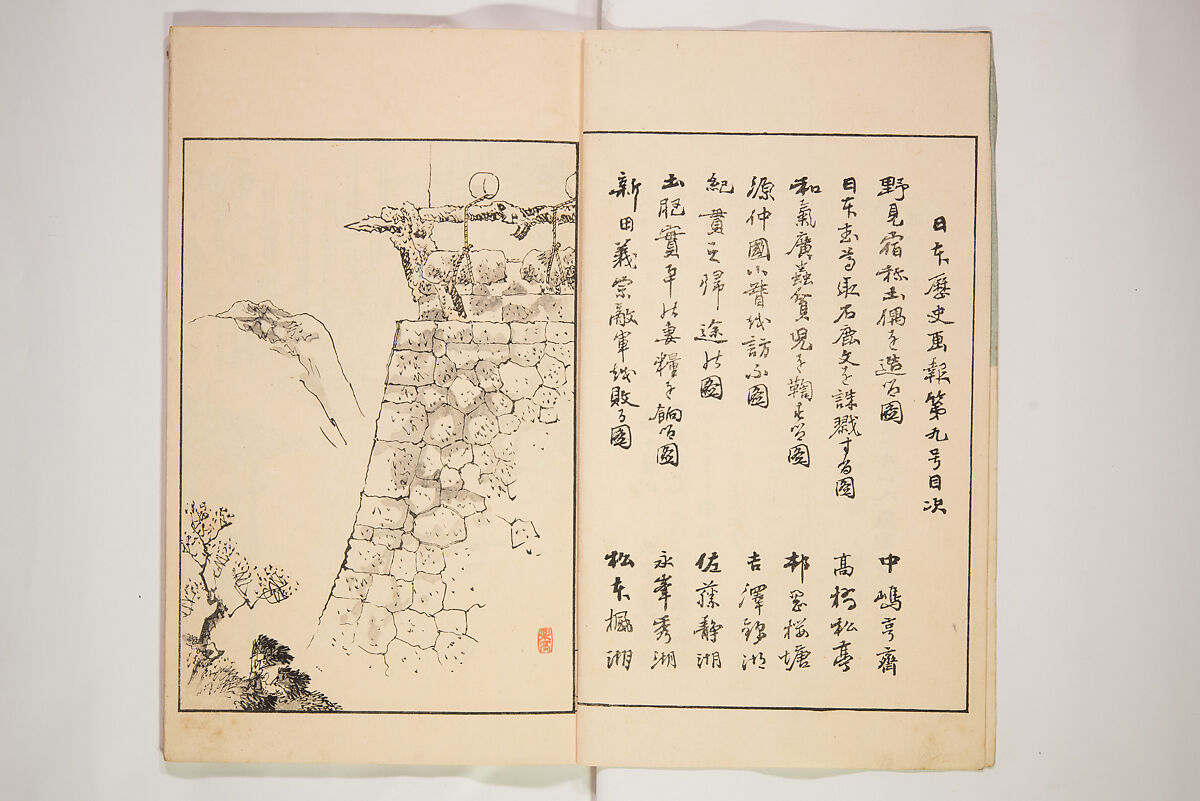 日本歴史画報第九号目次
野見宿祢土偶を造る圖 中嶋亨齋
日本武尊取石鹿文を誅戮する圖 高橋松亭
和氣廣蟲貧児を鞠する圖 邨岡桜塘
源仲國小督を訪ふ圖 吉澤錦湖
紀貫之歸途の圖 佐藤静湖
土肥實平の妻糧を餉る圖 永峯秀湖
新田義宗敵軍を敗る圖 松本楓湖